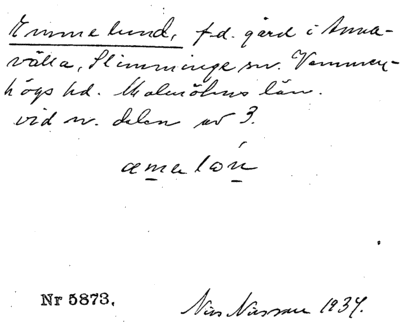 Emmelund, f.d. gård i Anna-
välla, Slimminge sn. Vemmen-
högs hd. Malmöhus län.
vid n. delen av 3.
amalón
Nr 5873.
Nils Nilsson 1934.